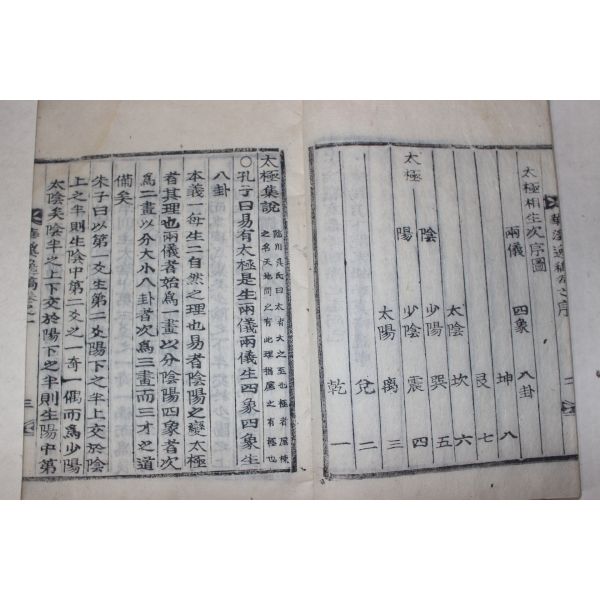 太極相生次序圖
兩儀 四象 八卦
坤 八
艮 七
太陰 坎 六
陰 少陽 巽 五
太極 陽 少陰 震 四
太陽 離 三
兌 二
乾 一
太極集說 臨川吳氏曰太者大之至也極者屋棟
之名天地間之有此理猶屋之有極也
○孔子曰易有太極是生兩儀兩儀生四象四象生
八卦
本義一每生二自然之理也易者陰陽之變太極
者其理也兩儀者始爲一畫以分陰陽四象者次
爲二畫以分大小八卦者次爲三畫而三才之道
備矣
朱子曰以第一爻生第二爻陽下之半上交於陰
上之半則生陰中第二爻之一奇一偶而爲少陽
太陰矣陰半之上下交於陽下之半則生陽中第